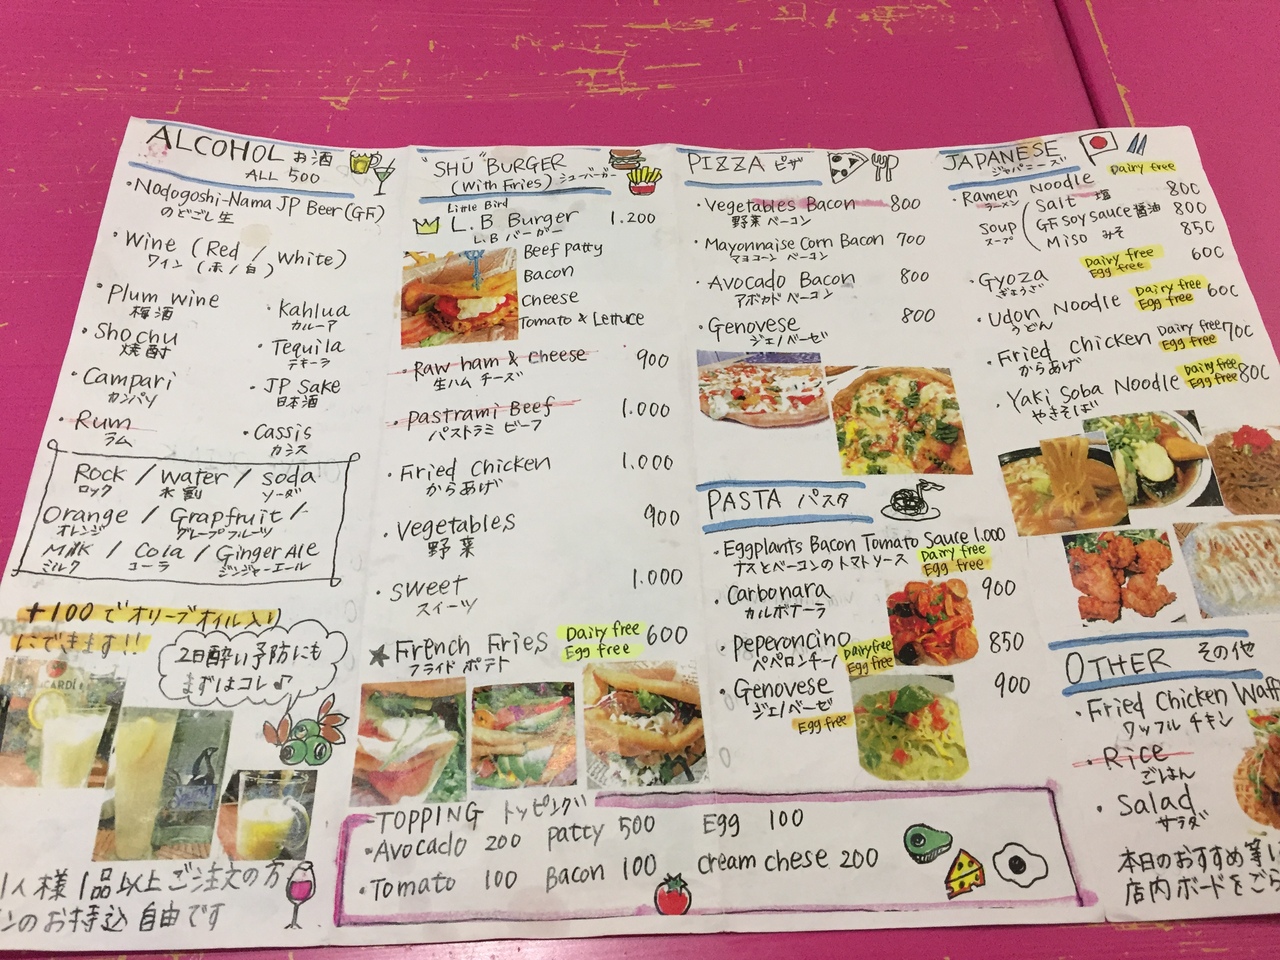 ALCOHOL お酒
ALL 500
・Nodogoshi-Nama JP Beer (GF)
のどごし生
・Wine (Red / White)
ワイン (赤/白)
・Plum wine
梅酒
・Shochu
焼酎
・Campari
カンパリ
・Rum
ラム
・Kahlua
カルーア
・Tequila
テキーラ
・JP Sake
日本酒
・Cassis
カシス
Rock / Water / Soda
ロック 水割 ソーダ
Orange / Grapfruit /
オレンジ グレープフルーツ
Milk / Cola / Ginger Ale
ミルク コーラ ジンジャーエール
+100でオリーブオイル入り
にできます!!
2日酔い予防にも
まずはコレ♪
1人様1品以上ご注文の方
ンのお持込自由です
"SHŪ" BURGER
(With Fries) シューバーガー
Little Bird
L.B Burger 1.200
L.B バーガー
Beef patty
Bacon
Cheese
Tomato & Lettuce
・Raw ham & Cheese 900
生ハム チーズ
・Pastrami Beef 1.000
パストラミ ビーフ
・Fried Chicken 1.000
からあげ
・Vegetables 900
野菜
・Sweet 1.000
スイーツ
★French Fries Dairy free Egg free 600
フライド ポテト
PIZZA ピザ
・Vegetables Bacon 800
野菜 ベーコン
・Mayonnaise Corn Bacon 700
マヨコーン ベーコン
・Avocado Bacon 800
アボカド ベーコン
・Genovese 800
ジェノベーゼ
PASTA パスタ
・Eggplants Bacon Tomato Sauce 1.000
ナスとベーコンのトマトソース Dairy free Egg free
・Carbonara 900
カルボナーラ
・Peperoncino Dairy free Egg free 850
ペペロンチーノ
・Genovese 900
ジェノベーゼ
Egg free
JAPANESE
ジャパニーズ
Dairy free
・Ramen Noodle
ラーメン
Soup
スープ
Salt 塩 800
GF soy sauce 醤油 800
Miso みそ 850
・Gyoza Dairy free Egg free 600
ぎょうざ
・Udon Noodle Dairy free Egg free 600
うどん
・Fried Chicken Dairy free Egg free 700
からあげ
・Yaki Soba Noodle Dairy free Egg free 800
やきそば
OTHER その他
・Fried Chicken Waff
ワッフル チキン
・Rice
ごはん
・Salad
サラダ
本日のおすすめ等
店内ボードをごら
TOPPING トッピング
・Avocado 200 Patty 500 Egg 100
・Tomato 100 Bacon 100 Cream chese 200